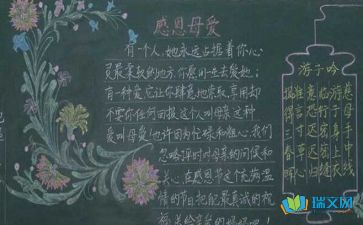 感恩母爱
有一个人,她永远占据着你心
灵最柔软的地方,你愿用一生去爱她;
有一种爱,它让你肆意地索取,享用却
不要你任何回报,这个人叫母亲,这种
爱叫母爱,也许因为忙碌和粗心,我们
忽略平时对母亲的问候和
关心,在感恩节这个充满温
情的节日,把最真诚的祝
妈妈吧!
游子吟
慈母手中线
游子身上衣
临行密密缝
意恐迟迟归
谁言寸草心
报得三春晖
瑞文网